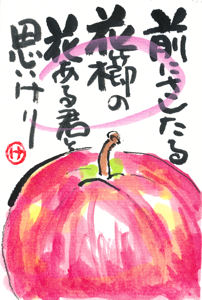 前にさしたる
花櫛の
花ある君と
思いけり
け